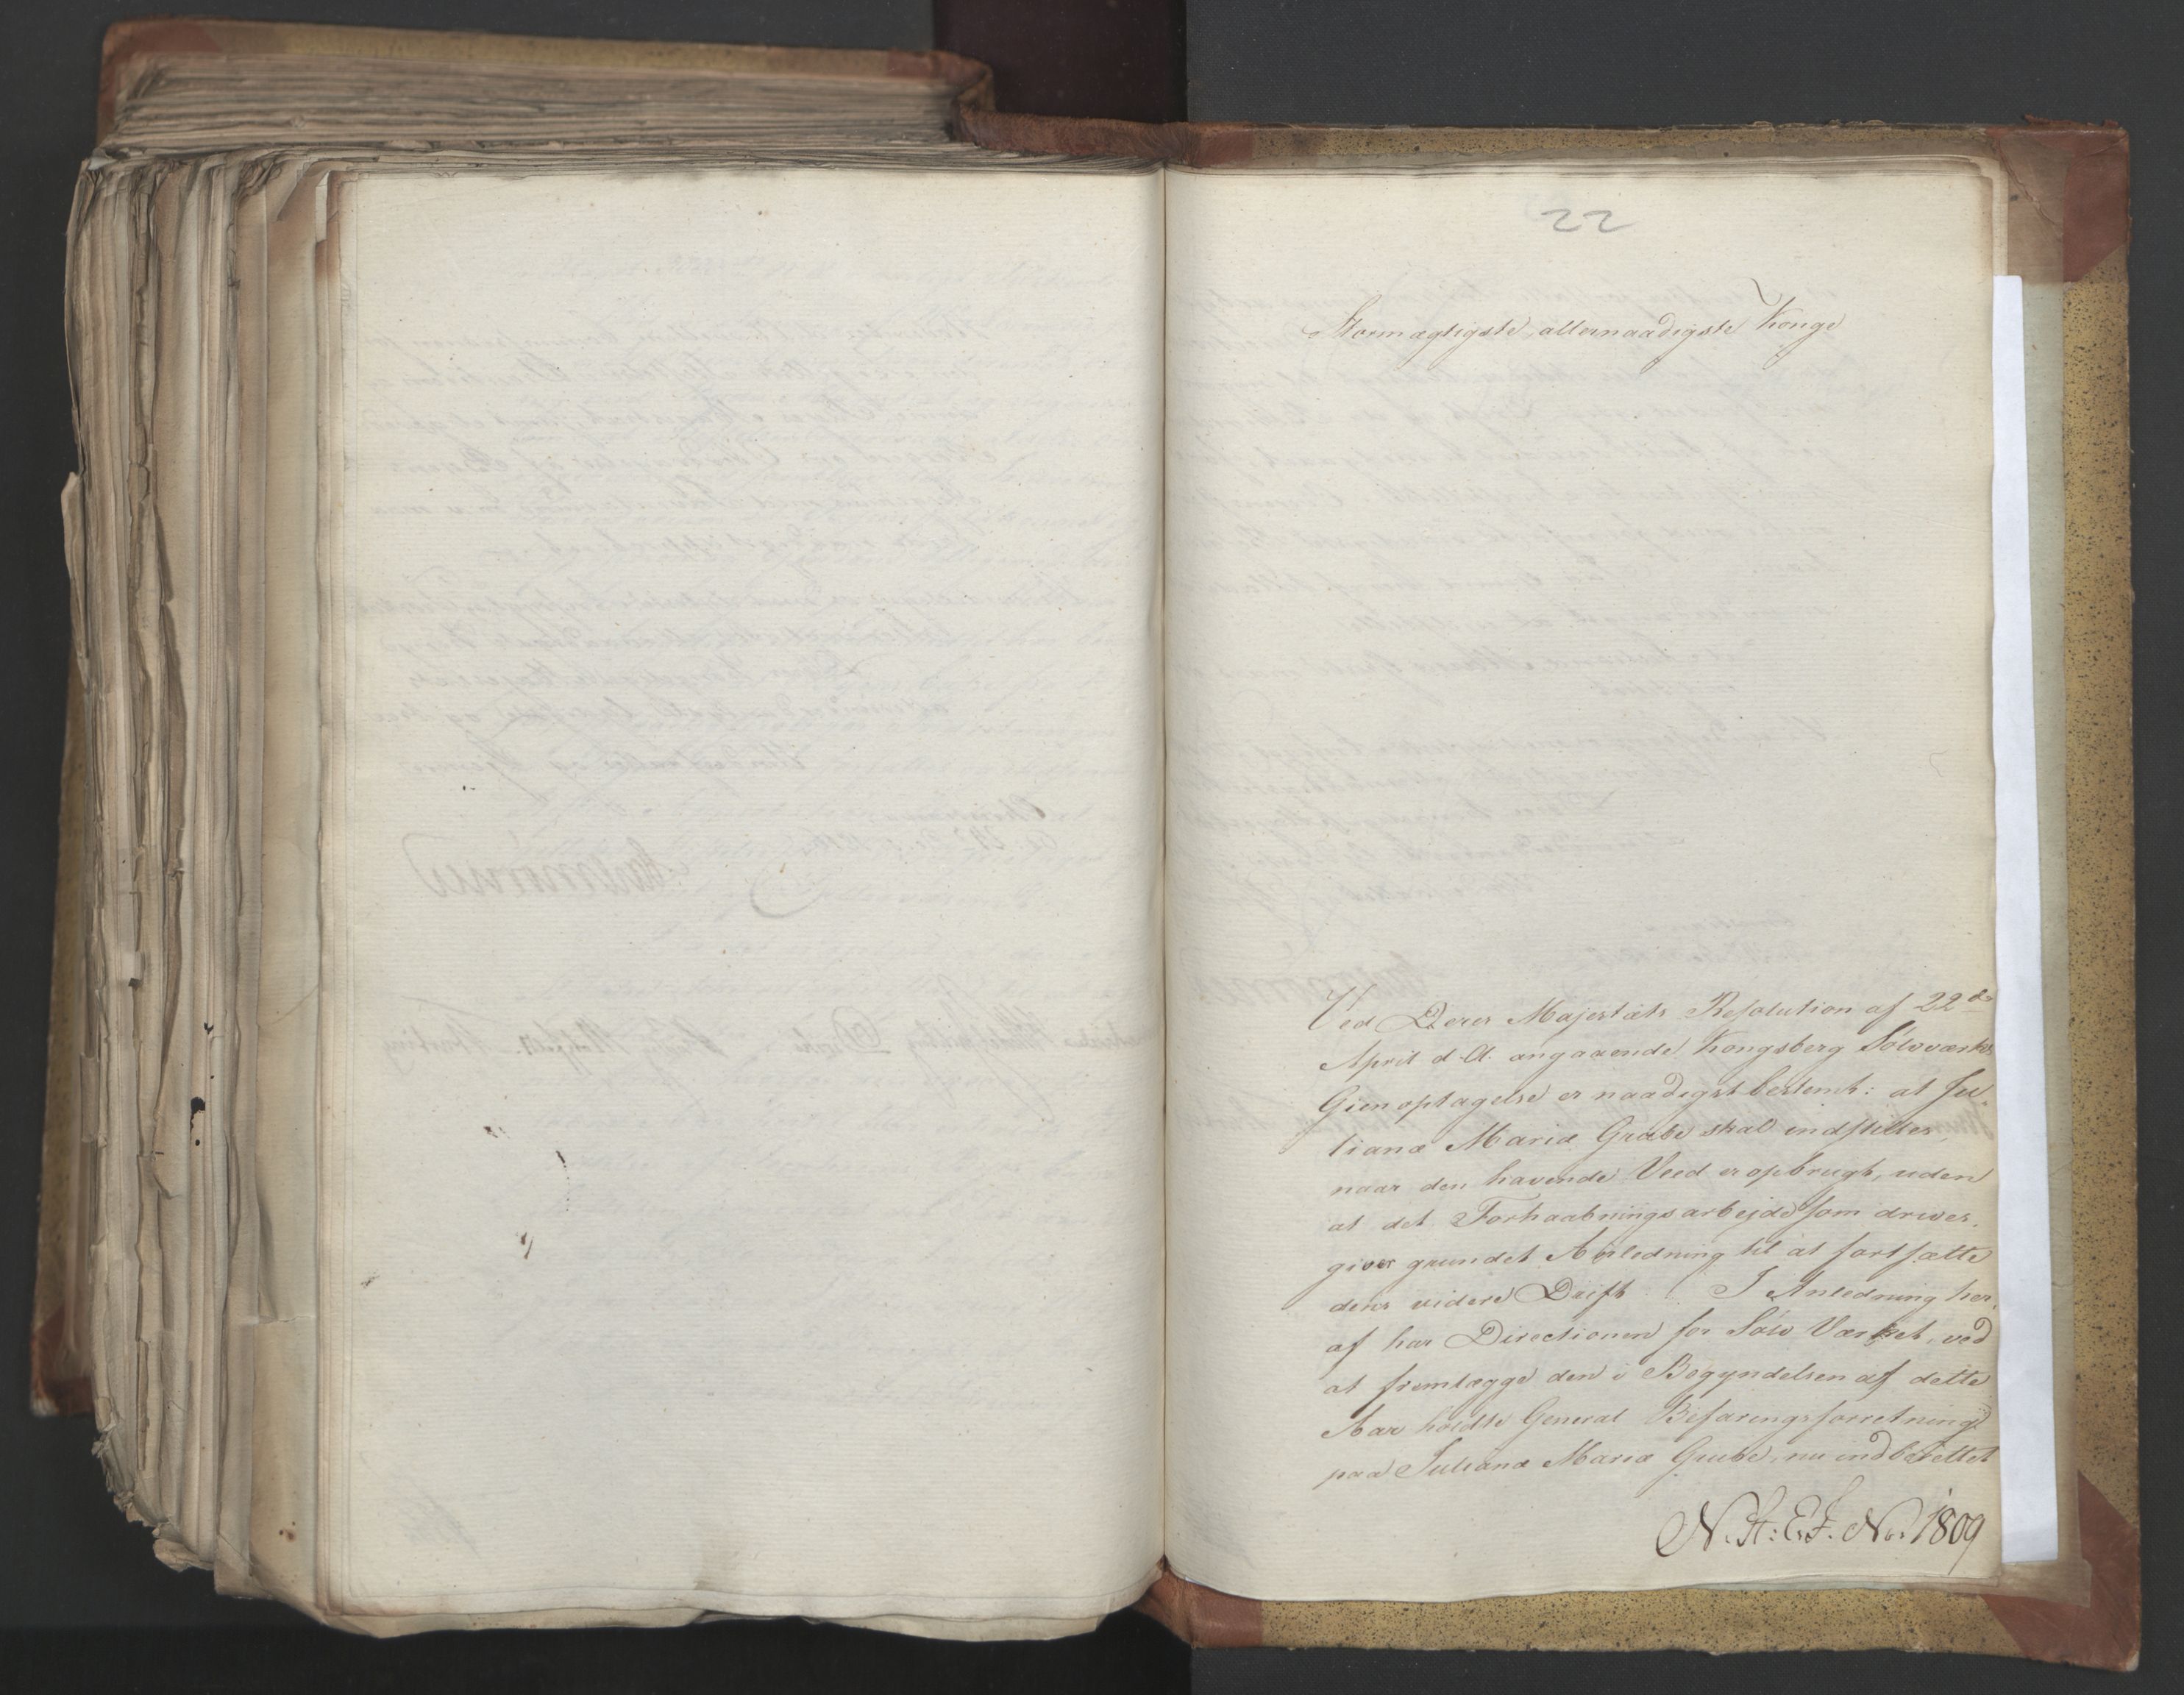 22
Stormægtigste, allernaadigste Konge
Ved Deres Majestæts Resolution af 22de
April d. A. angaaende Kongsberg Sølvværks
Gienoptagelse er naadigst bestemt: at Ju-
liane Maria Grube skal indstilles,
naar den havende Veed er opbrugt, uden
at det Forhaabningsarbejde som drives,
giver grundet Anledning til at fortsætte
dens videre Drift. I Anledning her-
af har Directionen for Sølv Værket, ved
at fremlægge den i Begyndelsen af dette
Aar holdte General Befaringsforretning
paa Juliane Maria Grube, nu indberettet
N. St: E. J. No. 1809